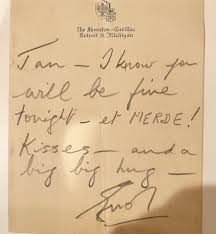 The Sheraton-Cadillac
Detroit 31, Michigan
Jan – I know you
will be fine
tonight – et MERDE!
Kisses – and a
big big hug –